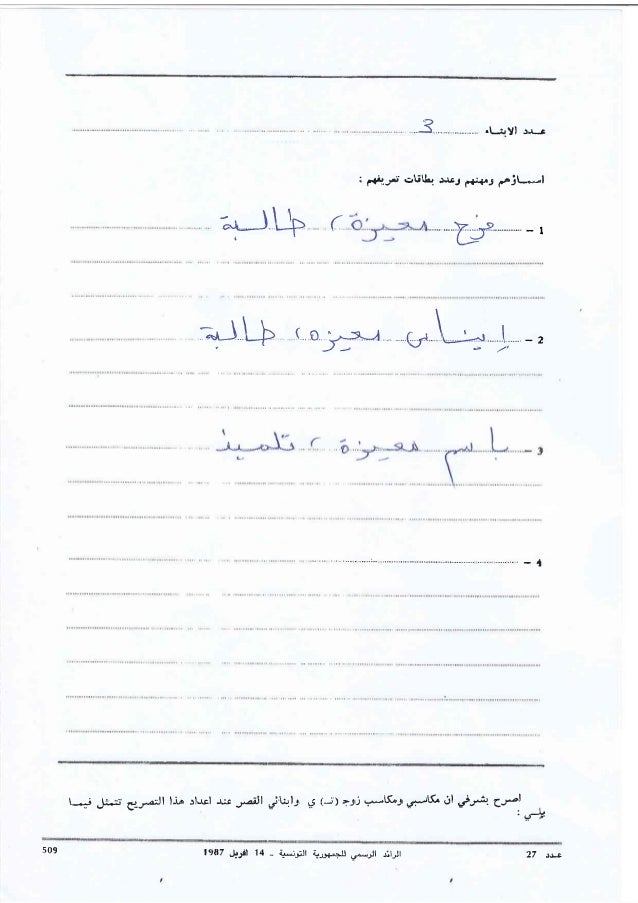 عدد الابناء 3
اسماؤهم ومهنهم وعدد بطاقات تعريفهم :
1 - فرح معيزة، طالبة
2 - إيناس معيزة، طالبة
3 - باسم معيزة، تلميذ
4 -
اصرح بشرفي ان مكاسبي ومكاسب زوجـ (تـ) ي وابنائي القصر عند اعداد هذا التصريح تتمثل فيما
يلي :
عدد 27 الرائد الرسمي للجمهورية التونسية ـ 14 افريل 1987 509